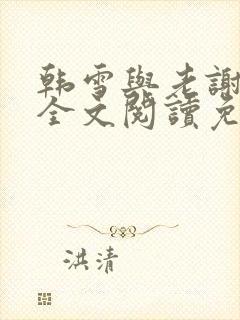 韩雪與老謝
全文閱讀免
洪清